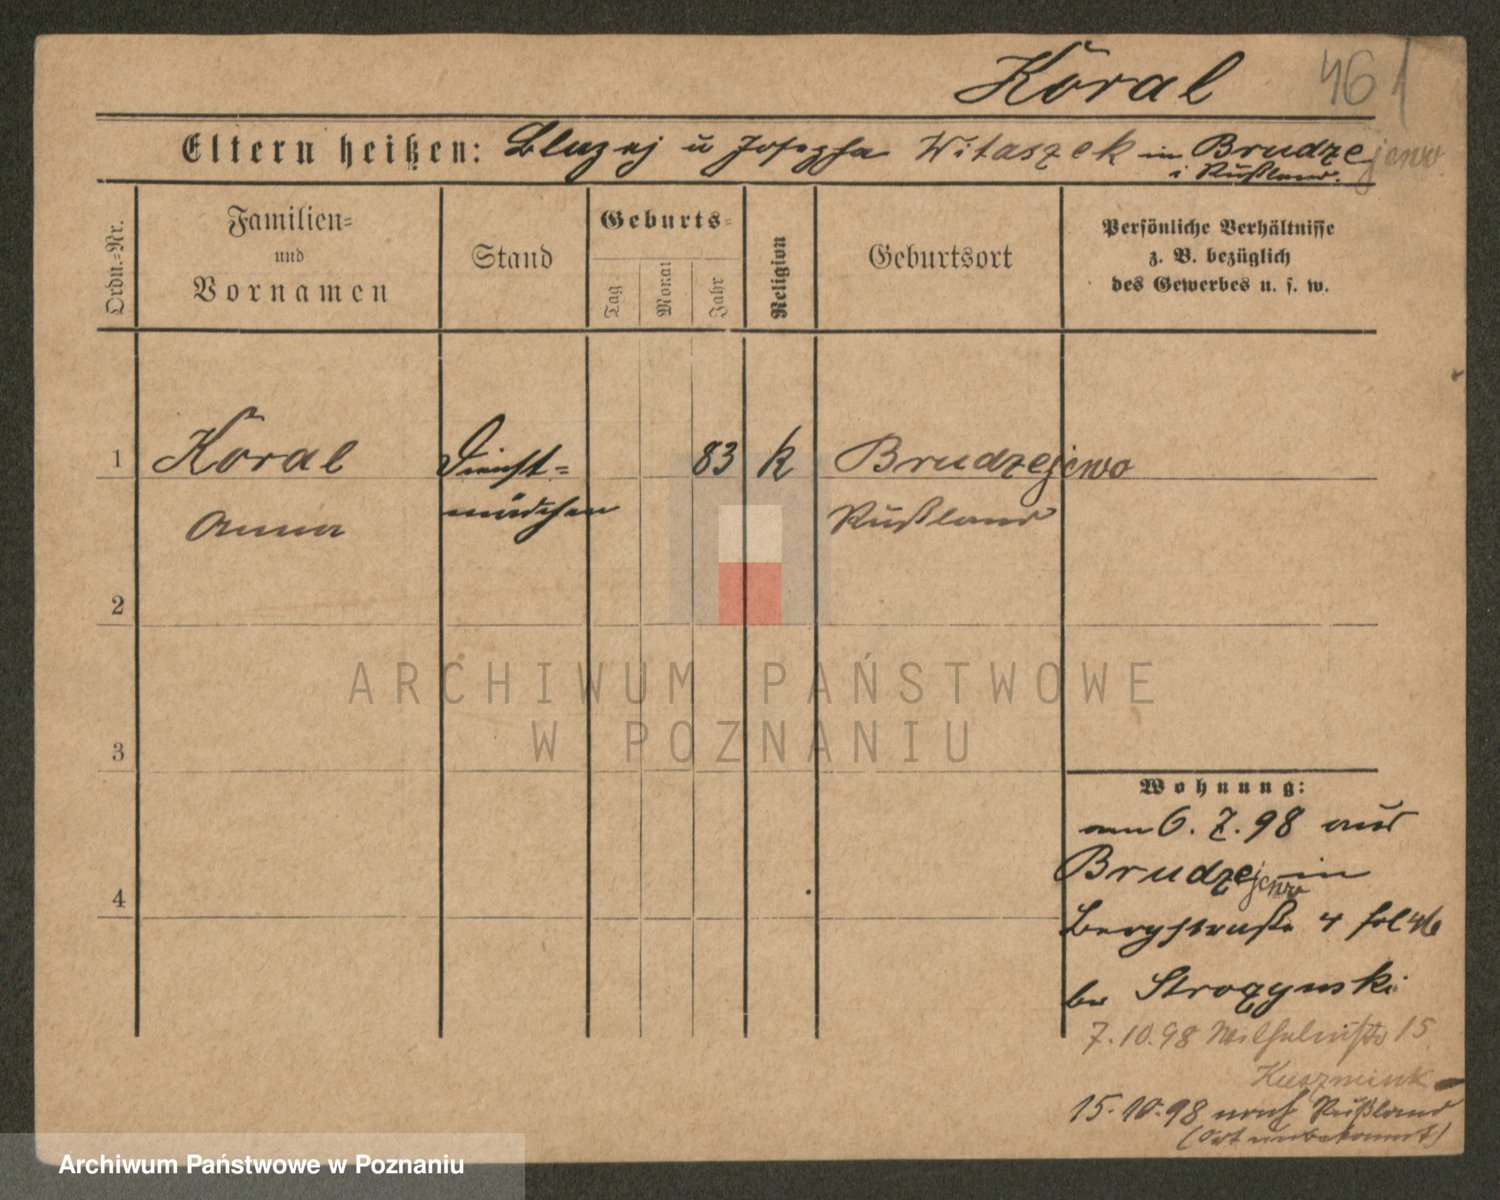 Koral 461
Eltern heißen: Blazej u Josepha Witaszek in Brudzejewo
i Rußland.
Ordn.-Nr.
Familien-
und
Vornamen
Stand
Geburts-
Tag
Monat
Jahr
Religion
Geburtsort
Persönliche Verhältnisse
z. B. bezüglich
des Gewerbes u. s. w.
1 Koral Dienst- 83 k Brudzejewo
Anna mädchen Rußland
2
ARCHIWUM PAŃSTWOWE
W POZNANIU
3
Wohnung:
am 6. 7. 98 aus
Brudzejewo in
4
Bergstraße 4 fol 46
bei Strozynski
7.10.98 Wilhelmstr 15
15.10.98 nach Rußland
(Ort unbekannt)
Archiwum Państwowe w Poznaniu